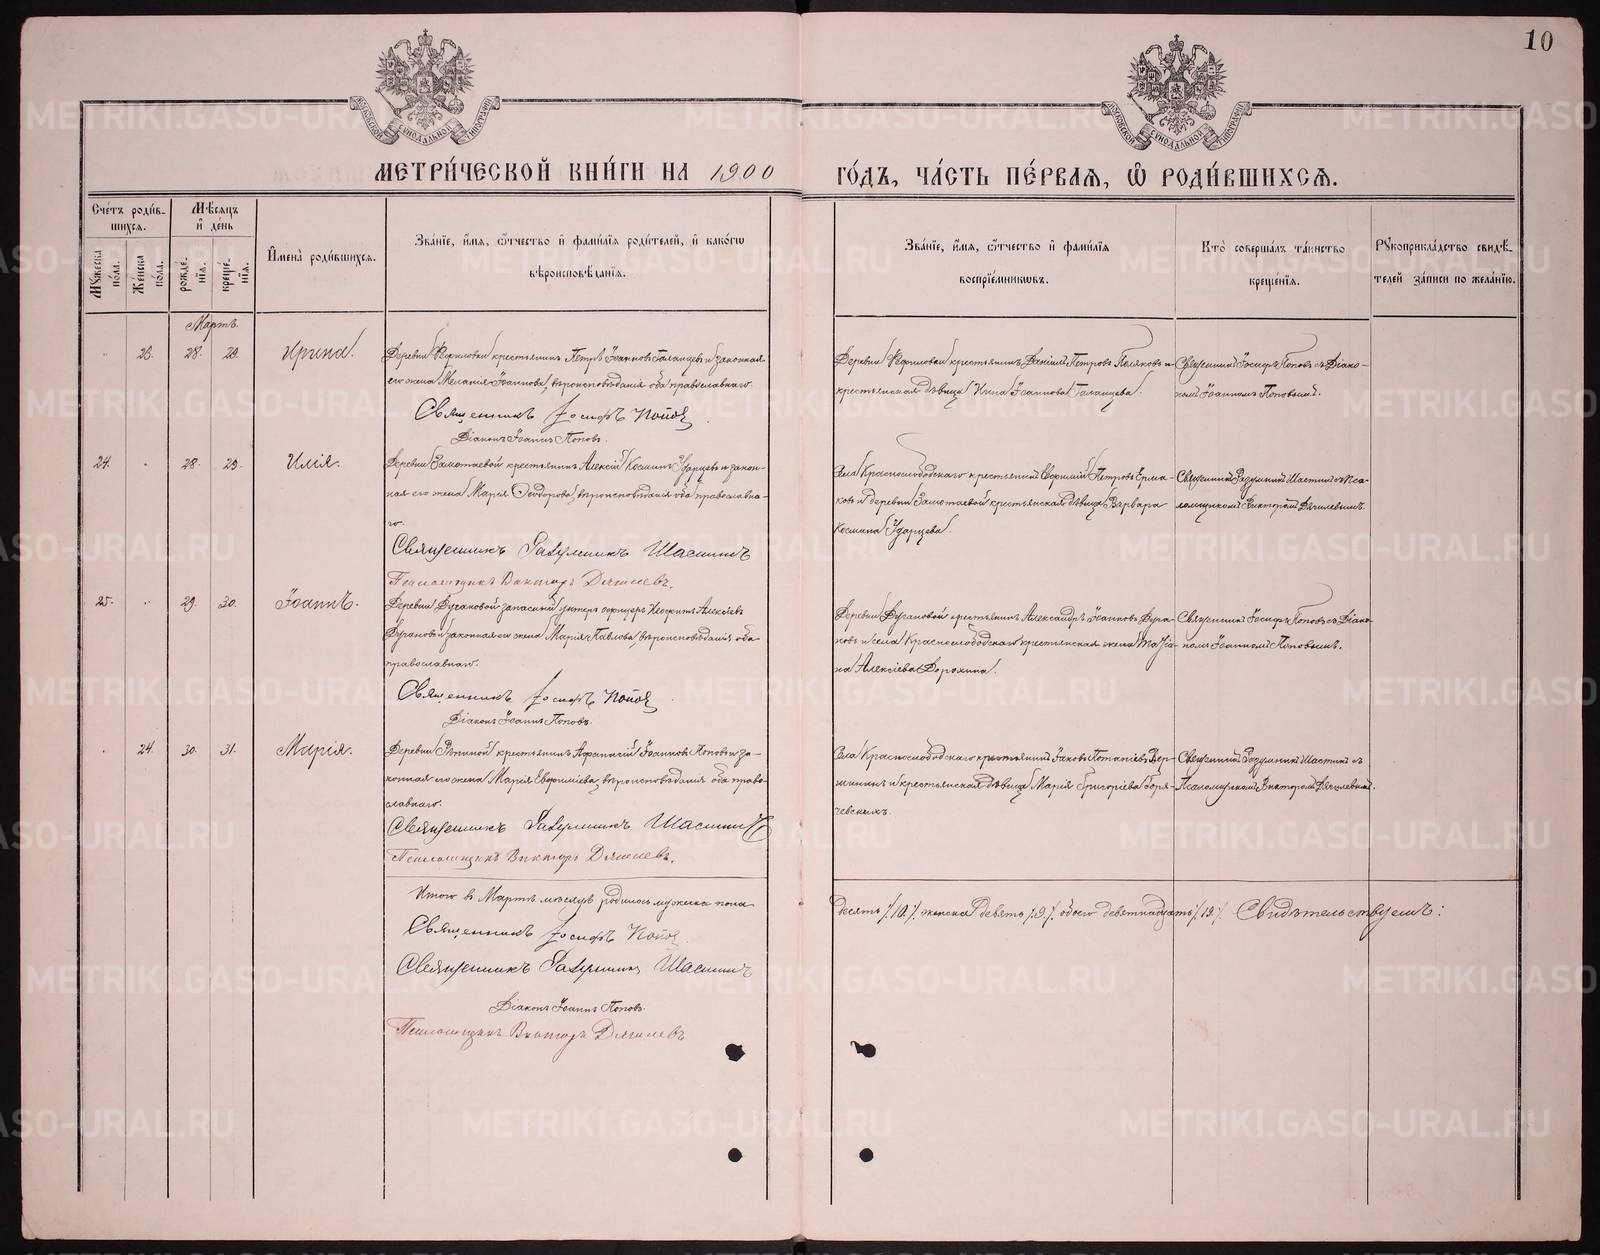 10
МОСКОВСКОЙ СѴНОДАЛЬНОЙ ТИПОГРАФІИ
МОСКОВСКОЙ СѴНОДАЛЬНОЙ ТИПОГРАФІИ
МЕТРИ́ЧЕСКОЙ КНИ́ГИ НА 1900 ГО́ДЪ, ЧА́СТЬ ПЕ́РВАѦ, Ѽ РОДИ́ВШИХСѦ.
Сче́тъ роди́в-
шихсѧ.
Мѣ́сѧцъ
и҆ де́нь
Мꙋ́жеска по́ла.
Же́нска по́ла.
рожде́-нїѧ.
креще́-нїѧ.
И҆мена̀ роди́вшихсѧ.
Зва́нїе, и҆́мѧ, ѻ҆́тчество и҆ фами́лїѧ роди́телей, и҆ како́гѡ
вѣроисповѣ́данїѧ.
Зва́нїе, и҆́мѧ, ѻ҆́тчество и҆ фами́лїѧ
воспрїе́мникѡвъ.
Кто̀ соверша́лъ та́инство
креще́нїѧ.
Рꙋкоприкла́дство свидѣ́-
телей за́писи по жела́нїю.
Мартъ
23. 28. 29. Ирина.
Деревни Ѳедиловки крестьянинъ Петръ Іоанновъ Галанцевъ и законная
его жена Меланія Іоаннова, вѣроисповѣданія оба православнаго.
Священникъ Іосифъ Поповъ
Діаконъ Іоаннъ Поповъ.
Деревни Ѳедиловки крестьянинъ Даніилъ Петровъ Поляковъ и
крестьянская дѣвица Нина Іоаннова Галанцева.
Священникъ Іосифъ Поповъ съ Діако-
номъ Іоанномъ Поповымъ.
24. 28. 29. Илія.
Деревни Замотаевой крестьянинъ Алексій Косминъ Ударцевъ и закон-
ная его жена Марія Ѳеодорова, вѣроисповѣданія оба православна-
го.
Священникъ Разумникъ Шастинъ
Псаломщикъ Викторъ Дягилевъ.
Села Краснослободскаго крестьянинъ Евфимій Петровъ Ерма-
ковъ и деревни Замотаевой крестьянская дѣвица Варвара
Космина Ударцева.
Священникъ Разумникъ Шастинъ съ Пса-
ломщикомъ Викторомъ Дягилевымъ.
25. 29. 30. Іоаннъ.
Деревни Бугановой запасный унтеръ офицеръ Неофитъ Алексіевъ
Бугановъ и законная его жена Марія Павлова, вѣроисповѣданія оба
православнаго.
Священникъ Іосифъ Поповъ
Діаконъ Іоаннъ Поповъ.
Деревни Бугановой крестьянинъ Александръ Іоанновъ Буга-
новъ и села Краснослободскаго крестьянская жена Татіа-
на Алексіева Дорохина.
Священникъ Іосифъ Поповъ съ Діако-
номъ Іоанномъ Поповымъ.
24. 30. 31. Марія.
Деревни крестьянинъ Аѳанасій Іоанновъ Поповъ и за-
конная его жена Марія Евфиміева, вѣроисповѣданія оба право-
славнаго.
Священникъ Разумникъ Шастинъ
Псаломщикъ Викторъ Дягилевъ.
Села Краснослободскаго крестьянинъ Іаковъ Потапіевъ Вер-
шининъ и крестьянская дѣвица Марія Григоріева Горя-
чевскихъ.
Священникъ Разумникъ Шастинъ съ
Псаломщикомъ Викторомъ Дягилевымъ.
Итого въ Мартѣ мѣсяцѣ родилось мужска пола
десять /10./ женска девять /9./ обоего девятнадцать /19./ Свидѣтельствуемъ:
Священникъ Іосифъ Поповъ.
Священникъ Разумникъ Шастинъ
Діаконъ Іоаннъ Поповъ.
Псаломщикъ Викторъ Дягилевъ
METRIKI.GASO-URAL.RU